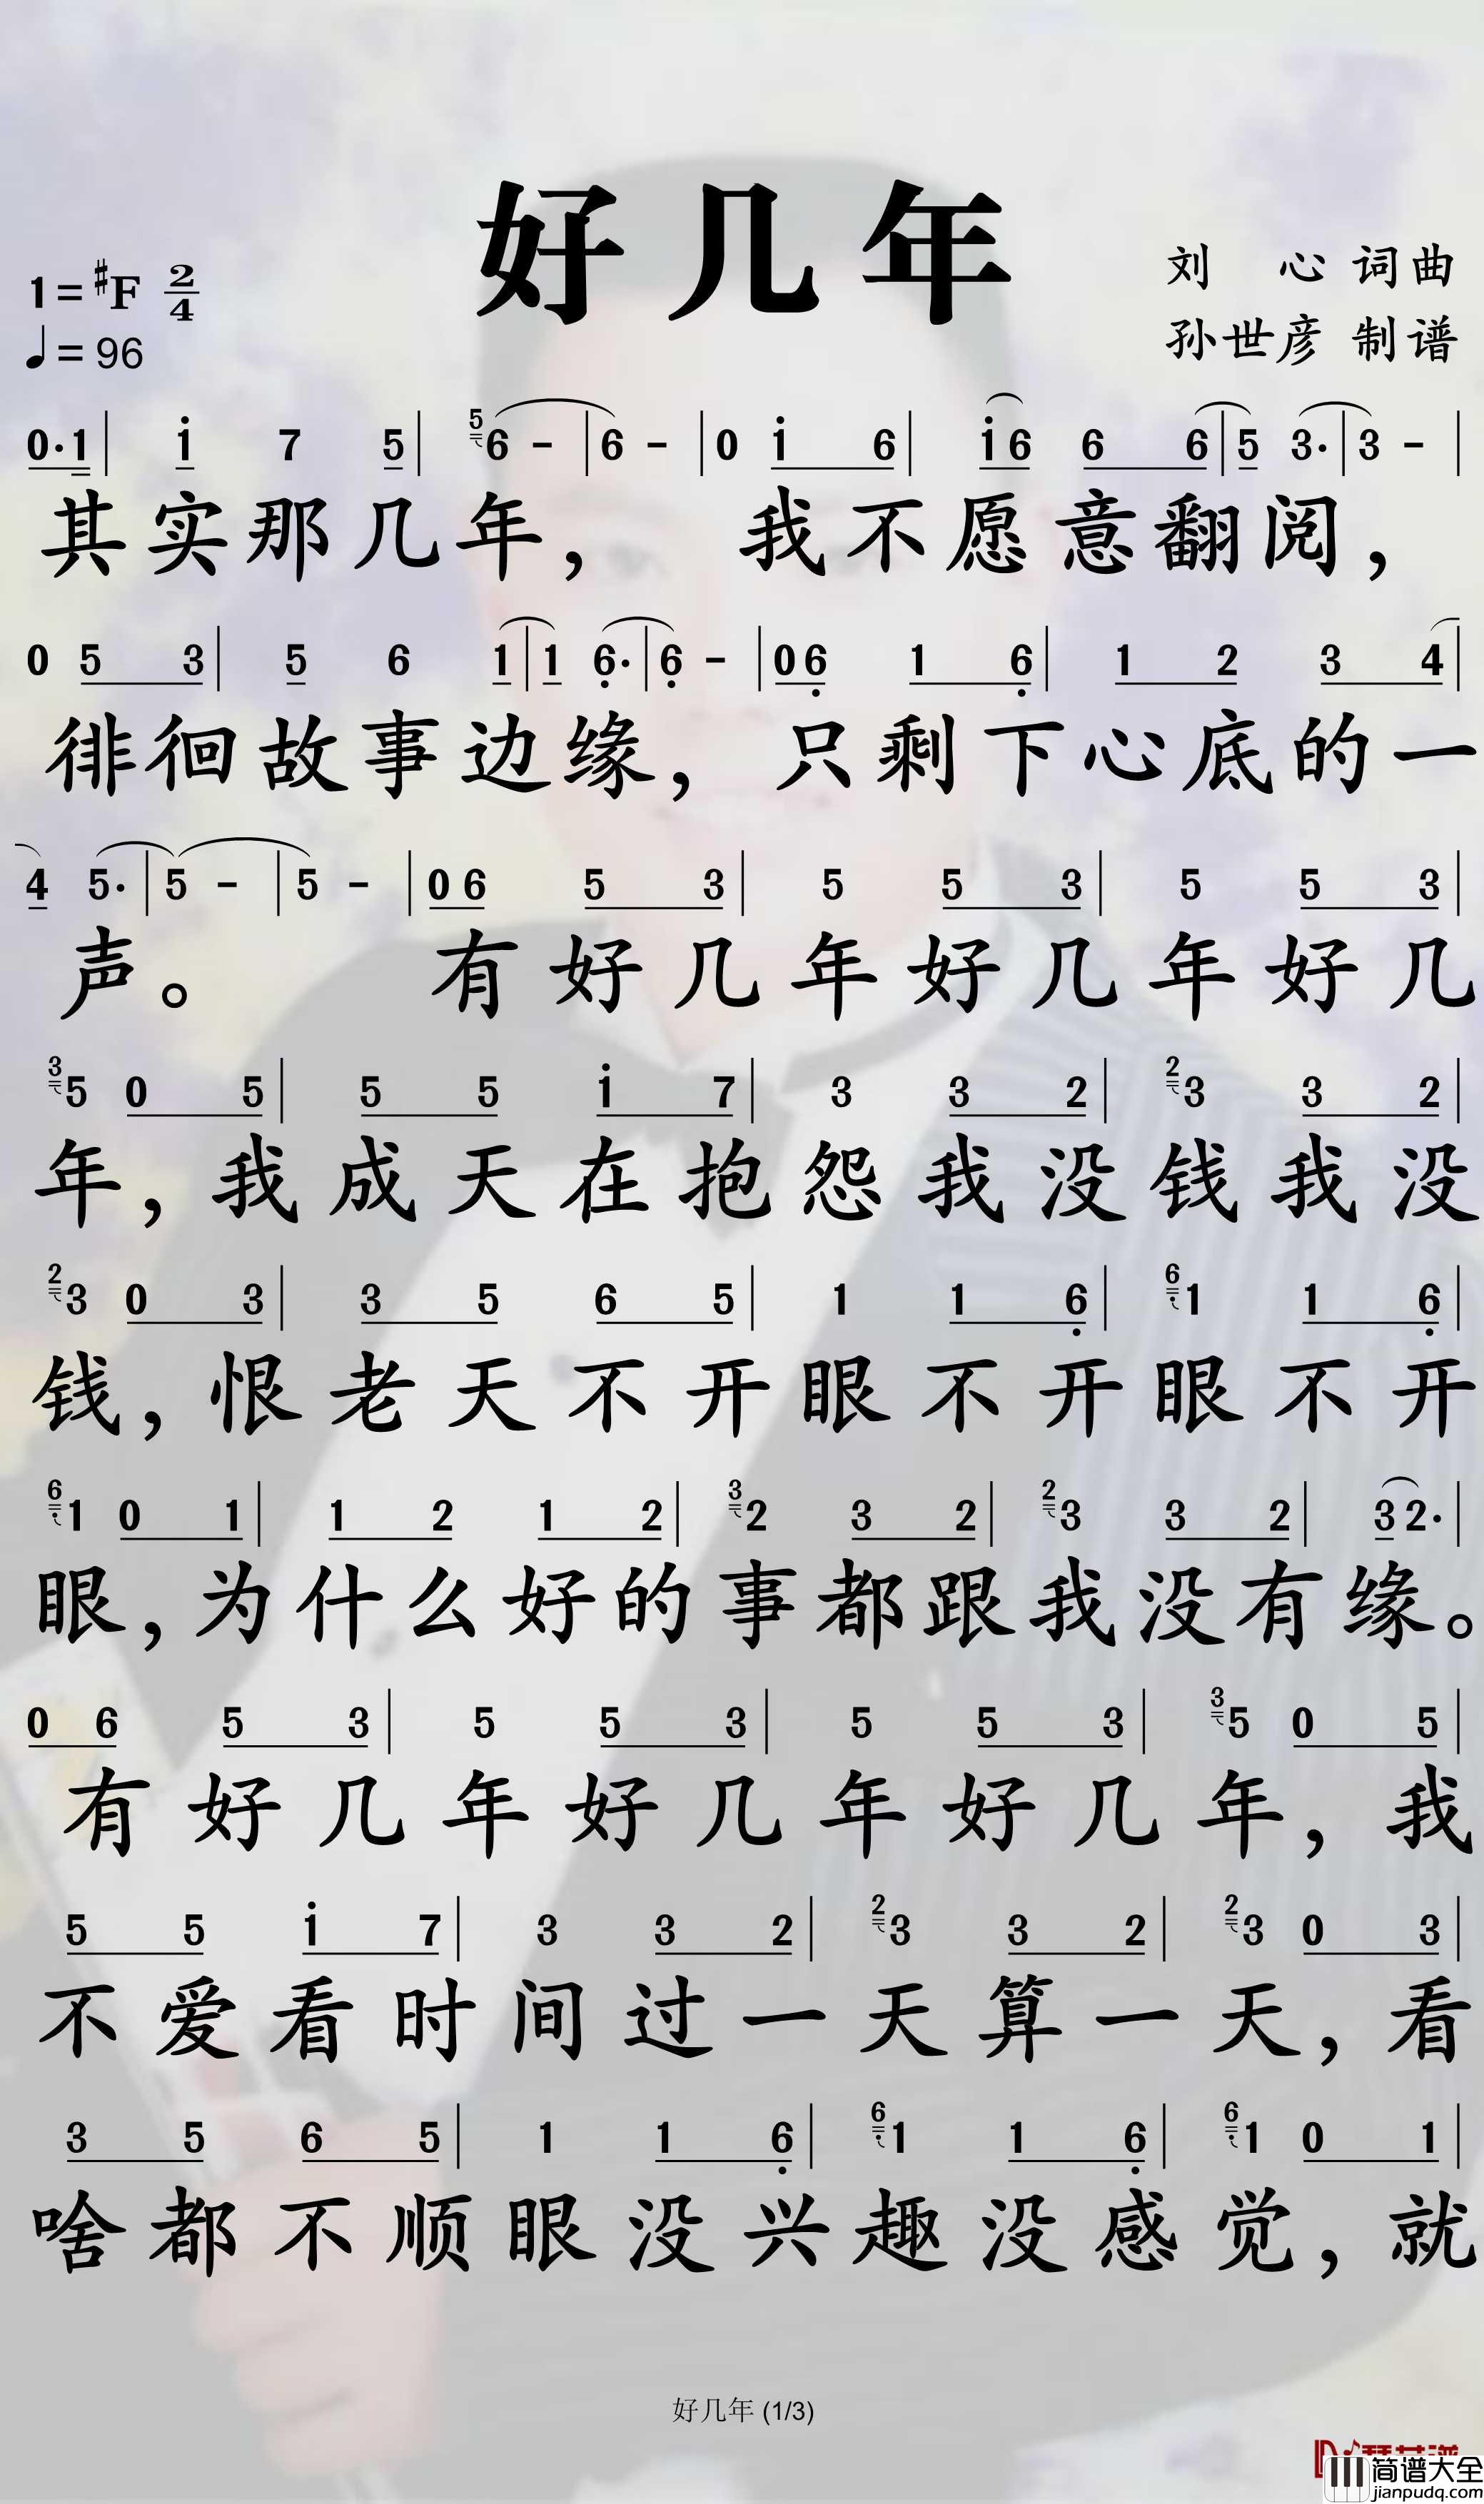 好几年
1=#F 2/4
♩=96
刘 心 词曲
孙世彦 制谱
0·1| i 7 5| 5 6 -| 6 -| 0 i 6| i 6 6 6| 5 3·| 3 -|
其实那几年, 我不愿意翻阅,
0 5 3| 5 6 1| 1 6·| 6 -| 0 6 1 6| 1 2 3 4|
徘徊故事边缘, 只剩下心底的一
4 5·| 5 -| 5 -| 0 6 5 3| 5 5 3| 5 5 3|
声。 有好几年好几年好几
3 5 0 5| 5 5 i 7| 3 3 2| 2 3 3 2|
年,我成天在抱怨我没钱我没
2 3 0 3| 3 5 6 5| 1 1 6| 6 1 1 6|
钱,恨老天不开眼不开眼不开
6 1 0 1| 1 2 1 2| 3 2 3 2| 2 3 3 2| 3 2·|
眼,为什么好的事都跟我没有缘。
0 6 5 3| 5 5 3| 5 5 3| 3 5 0 5|
有好几年好几年好几年,我
5 5 i 7| 3 3 2| 2 3 3 2| 2 3 0 3|
不爱看时间过一天算一天,看
3 5 6 5| 1 1 6| 6 1 1 6| 6 1 0 1|
啥都不顺眼没兴趣没感觉,就
好几年 (1/3)
简谱大全
jianpudq.com